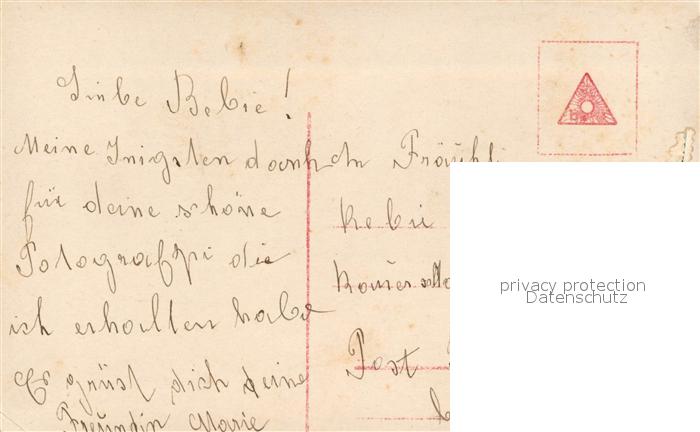 Liebe Bebie!
Meine Inigsten dank
für deine schöne
Fotografhi die
ich erhallten habe
Es grüst dich deine
Freundin Marie
Post
privacy protection
Datenschutz